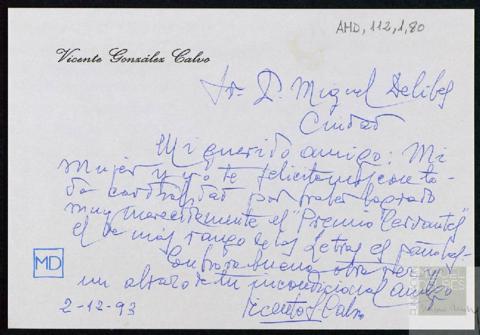 AMD, 112, 1, 80
Vicente González Calvo
Sr. D. Miguel Delibes
Ciudad
Mi querido amigo: Mi
mujer y yo te felicitamos con to-
da cordialidad por haber logrado
muy merecidamente el "Premio Cervantes"
el de más rango de las Letras españolas.
Enhorabuena otra vez y
un abrazo de tu incondicional amigo
Vicente G Calvo
MD
2-12-93